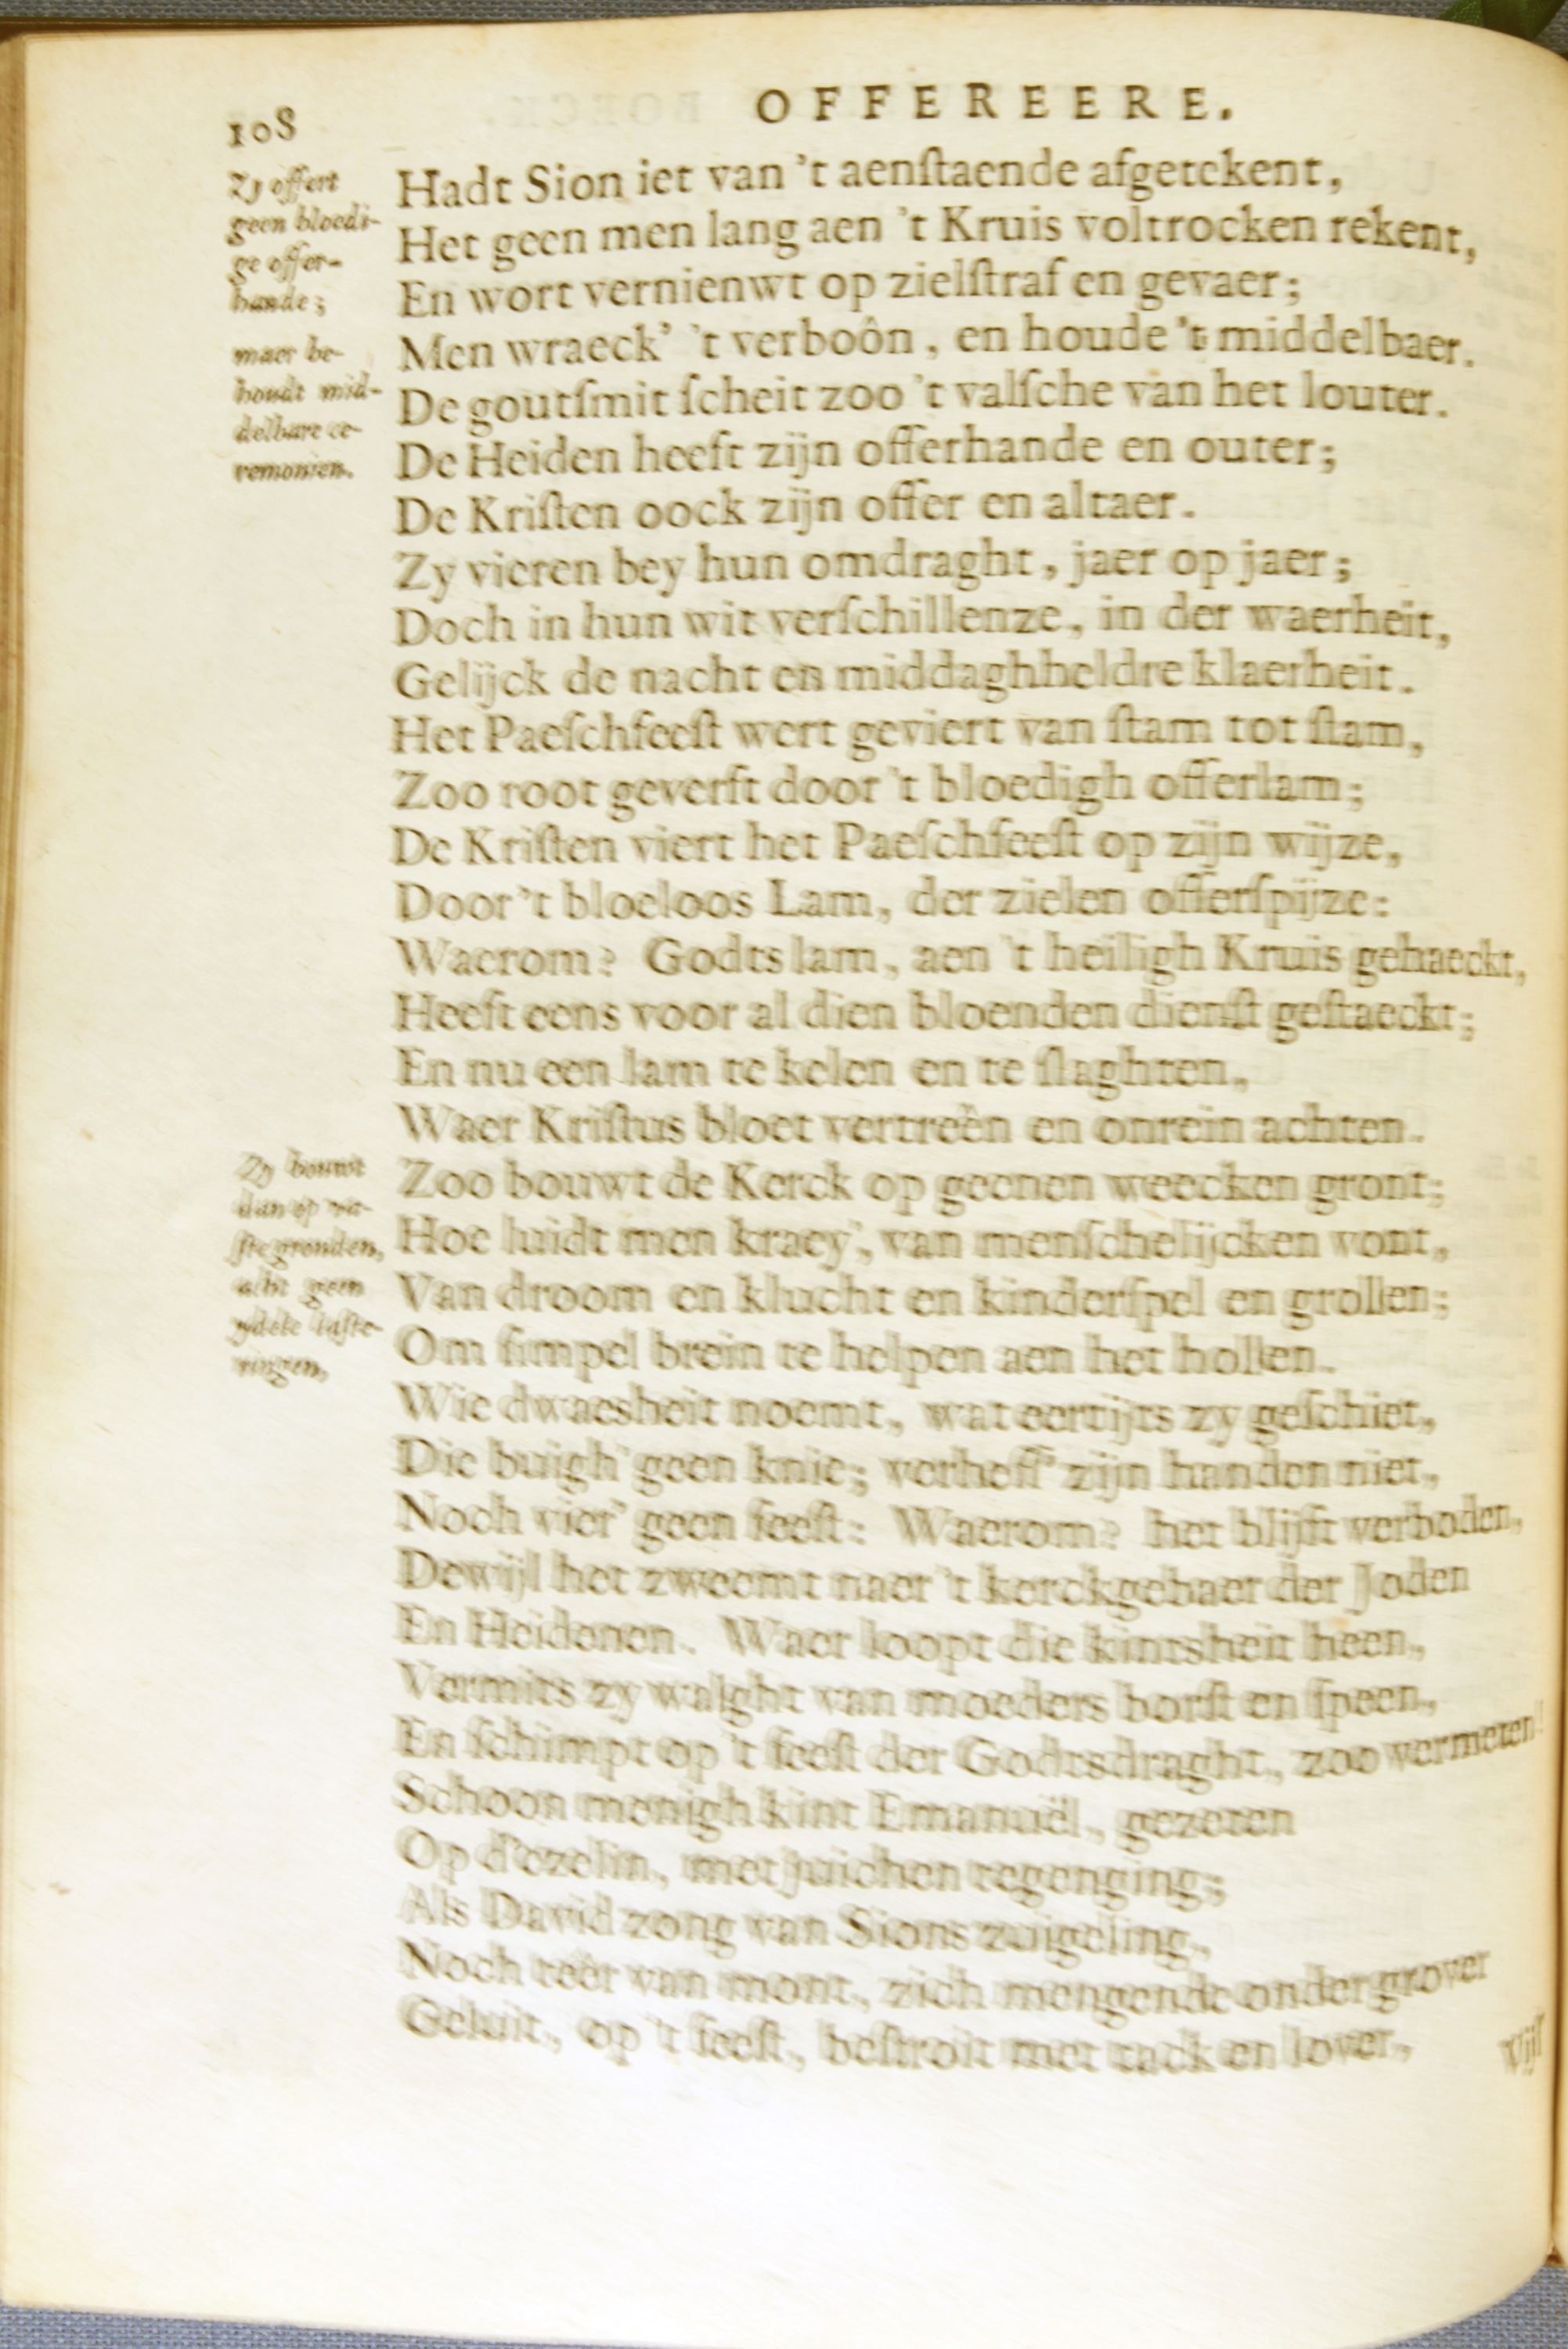 108 OFFEREERE.
Zy offert
geen bloedi-
ge offer-
hande;
maer be-
houdt mid-
delbare ce-
remonien.
Hadt Sion iet van 't aenſtaende afgetekent,
Het geen men lang aen 't Kruis voltrocken rekent,
En wort vernienwt op zielſtraf en gevaer;
Men wraeck' 't verboôn, en houde 't middelbaer.
De goutſmit ſcheit zoo 't valſche van het louter.
De Heiden heeft zijn offerhande en outer;
De Kriſten oock zijn offer en altaer.
Zy vieren bey hun omdraght, jaer op jaer;
Doch in hun wit verſchillenze, in der waerheit,
Gelijck de nacht en middaghheldre klaerheit.
Het Paeſchfeeſt wert geviert van ſtam tot ſtam,
Zoo root geverft door 't bloedigh offerlam;
De Kriſten viert het Paeſchfeeſt op zijn wijze,
Door 't bloeloos Lam, der zielen offerſpijze:
Waerom? Godts lam, aen 't heiligh Kruis gehaeckt,
Heeft eens voor al dien bloenden dienſt geſtaeckt;
En nu een lam te kelen en te ſlaghten,
Waer Kriſtus bloet vertreên en onrein achten.
Zy bouwt
dan op va-
ſte gronden,
acht geen
ydele laſte-
ringen,
Zoo bouwt de Kerck op geenen weecken gront;
Hoe luidt men kraey', van menſchelijcken vont,
Van droom en klucht en kinderſpel en grollen;
Om ſimpel brein te helpen aen het hollen.
Wie dwaesheit noemt, wat eertijts zy geſchiet,
Die buigh' geen knie; verheff' zijn handen niet,
Noch vier' geen feeſt: Waerom? het blijft verboden,
Dewijl het zweemt naer 't kerckgebaer der Joden
En Heidenen. Waer loopt die kintsheit heen,
Vermits zy walght van moeders borſt en ſpeen,
En ſchimpt op 't feeſt der Godtsdraght, zoo vermeten!
Schoon menigh kint Emanuël, gezeten
Op d'ezelin, met juichen tegenging;
Als David zong van Sions zuigeling,
Noch teêr van mont, zich mengende onder grover
Geluit, op 't feeſt, beſtroit met tack en lover,